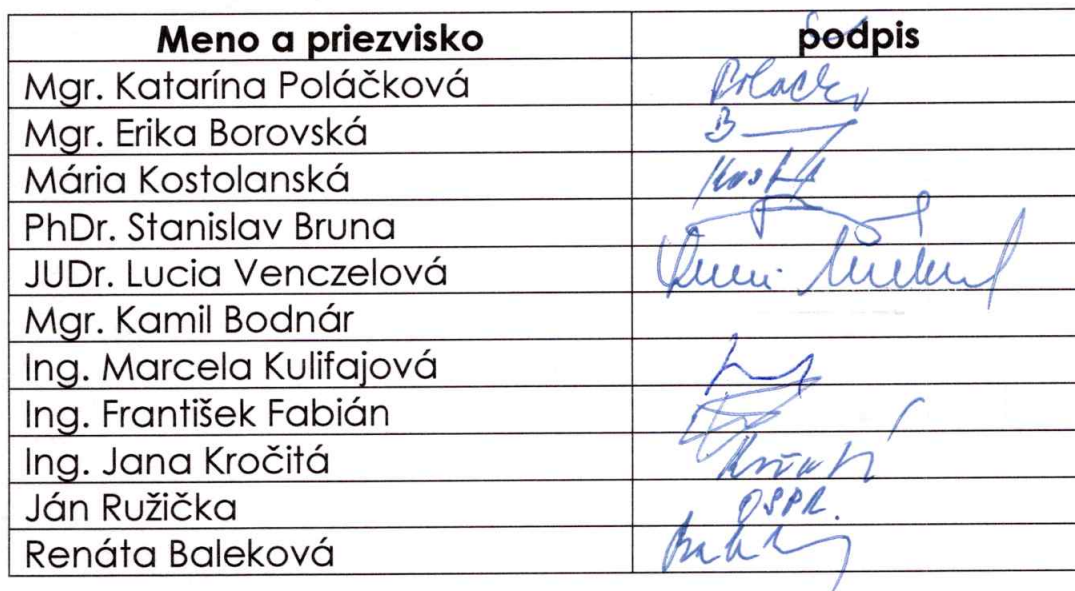 Meno a priezvisko podpis
Mgr. Katarína Poláčková
Mgr. Erika Borovská
Mária Kostolanská
PhDr. Stanislav Bruna
JUDr. Lucia Venczelová
Mgr. Kamil Bodnár
Ing. Marcela Kulifajová
Ing. František Fabián
Ing. Jana Kročitá
Ján Ružička OSPR.
Renáta Baleková